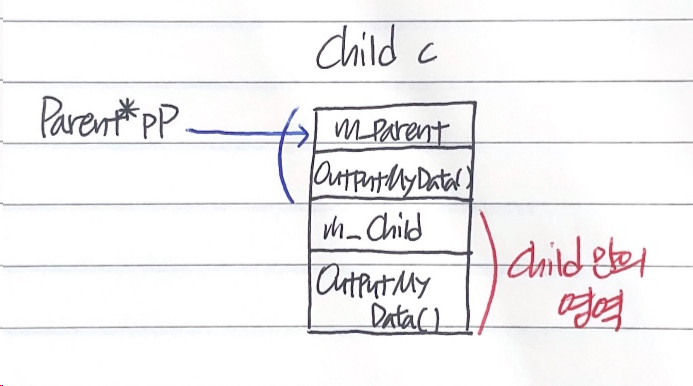 Child c
Parent* pP
m_Parent
OutputMyData()
m_Child
OutputMy
Data()
Child 만의
영역